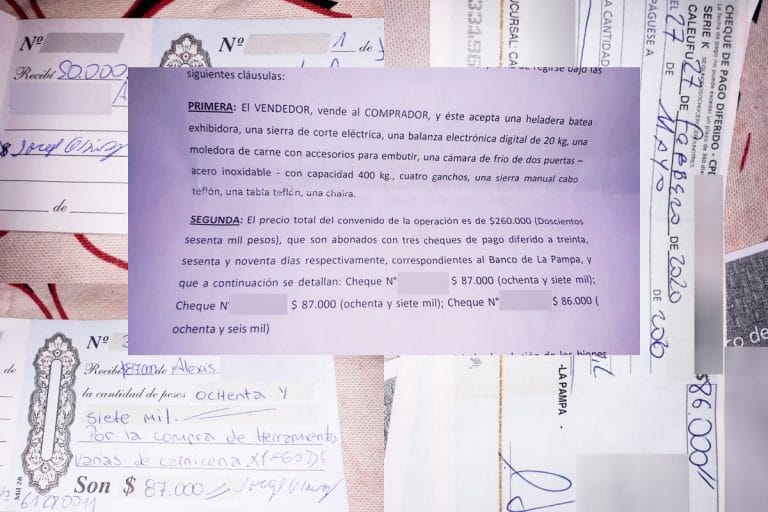 Nº
Nº 1 de
Recibí 80.000
de
siguientes cláusulas:
PRIMERA: El VENDEDOR, vende al COMPRADOR, y éste acepta una heladera batea
exhibidora, una sierra de corte eléctrica, una balanza electrónica digital de 20 kg, una
moledora de carne con accesorios para embutir, una cámara de frío de dos puertas –
acero inoxidable - con capacidad 400 kg., cuatro ganchos, una sierra manual cabo
teflón, una tabla teflón, una chaira.
SEGUNDA: El precio total del convenido de la operación es de $260.000 (Doscientos
sesenta mil pesos), que son abonados con tres cheques de pago diferido a treinta,
sesenta y noventa días respectivamente, correspondientes al Banco de La Pampa, y
que a continuación se detallan: Cheque N° $ 87.000 (ochenta y siete mil);
Cheque N° $ 87.000 (ochenta y siete mil); Cheque N° $ 86.000 (
ochenta y seis mil)
de
Nº
Recibí $87.000 de Alexis
la cantidad de pesos ochenta y
siete mil.
Por la compra de Herramientas
varias de carniceria. X PAGO DE
Son $ 87.000
CHEQUE DE PAGO DIFERIDO - CPD
SERIE K
CALEUFU, 27 DE Febrero DE 2020
EL 27 DE MAYO DE 2020
PÁGUESE A
A CANTIDAD
SUCURSAL: CA
-LA PAMPA -
$ 86.000